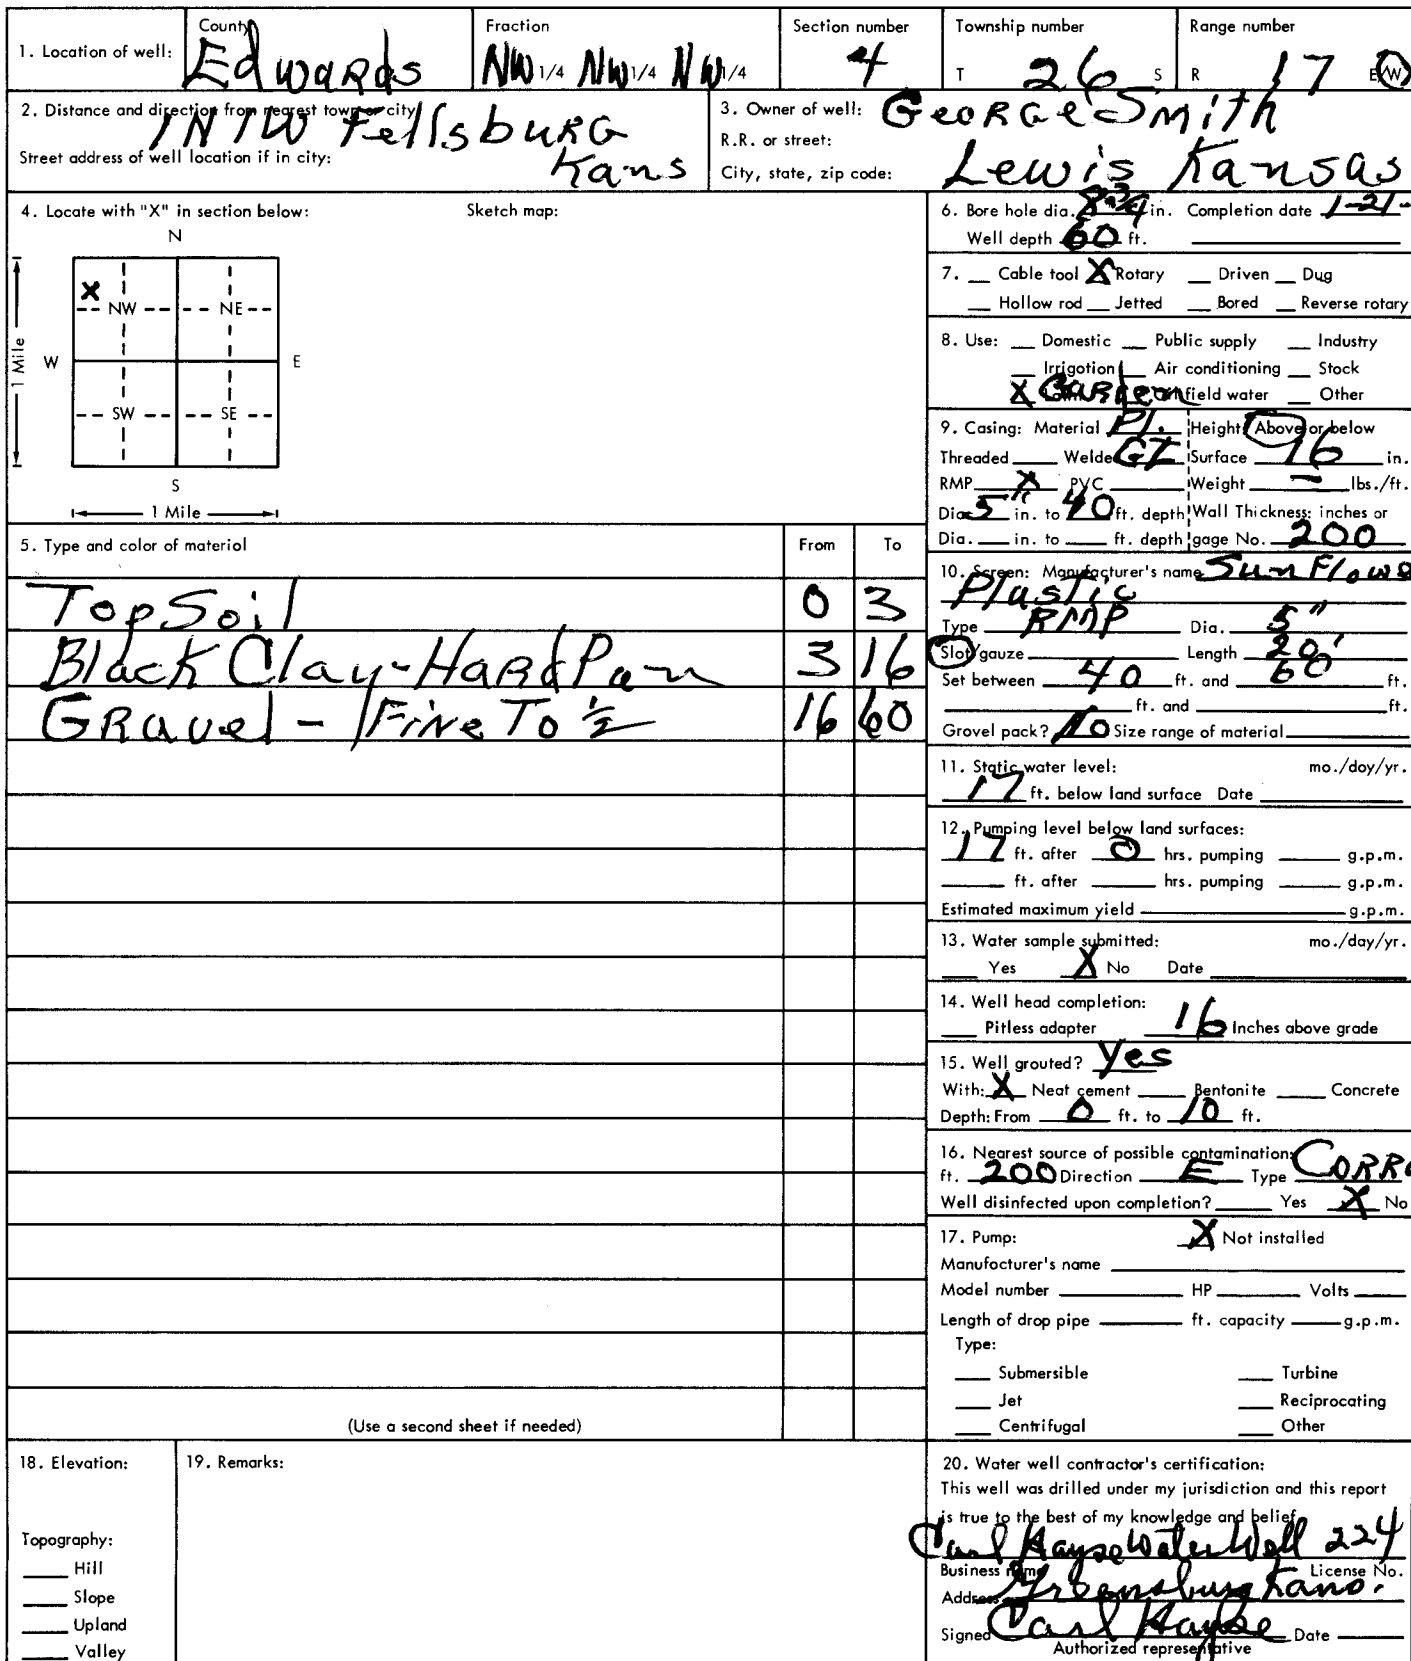 1. Location of well: County Edwards Fraction NW 1/4 NW 1/4 NW 1/4 Section number 4 Township number T 26 S Range number R 17 E/W
2. Distance and direction from nearest town or city 1N 1W Fellsburg Kans
Street address of well location if in city:
3. Owner of well: George Smith
R.R. or street:
City, state, zip code: Lewis Kansas
4. Locate with "X" in section below: Sketch map:
N
X
NW NE
W E
1 Mile
SW SE
S
1 Mile
5. Type and color of material From To
Top Soil 0 3
Black Clay-Hard Pan 3 16
Gravel - Fine To 1/2 16 60
(Use a second sheet if needed)
6. Bore hole dia. 8 3/4 in. Completion date 1-21-
Well depth 60 ft.
7. Cable tool X Rotary Driven Dug
Hollow rod Jetted Bored Reverse rotary
8. Use: Domestic Public supply Industry
Irrigation Air conditioning Stock
X Garden field water Other
9. Casing: Material Pl. Height: Above or below
Threaded Welded GZ Surface 16 in.
RMP X PVC Weight - lbs./ft.
Dia. 5" in. to 40 ft. depth Wall Thickness: inches or
Dia. in. to ft. depth gage No. 200
10. Screen: Manufacturer's name SunFlowe
Plastic
Type RMP Dia. 5"
Slot/gauze Length 20'
Set between 40 ft. and 60 ft.
ft. and ft.
Gravel pack? No Size range of material
11. Static water level: mo./day/yr.
17 ft. below land surface Date
12. Pumping level below land surfaces:
17 ft. after 0 hrs. pumping g.p.m.
ft. after hrs. pumping g.p.m.
Estimated maximum yield g.p.m.
13. Water sample submitted: mo./day/yr.
Yes X No Date
14. Well head completion:
Pitless adapter 16 Inches above grade
15. Well grouted? Yes
With: X Neat cement Bentonite Concrete
Depth: From 0 ft. to 10 ft.
16. Nearest source of possible contamination:
ft. 200 Direction E Type CORRA
Well disinfected upon completion? Yes X No
17. Pump: X Not installed
Manufacturer's name
Model number HP Volts
Length of drop pipe ft. capacity g.p.m.
Type:
Submersible Turbine
Jet Reciprocating
Centrifugal Other
18. Elevation:
Topography:
Hill
Slope
Upland
Valley
19. Remarks:
20. Water well contractor's certification:
This well was drilled under my jurisdiction and this report
is true to the best of my knowledge and belief.
Carl Hayse Water Well 224
Business name License No.
Address Greensburg Kans.
Signed Carl Hayse Date
Authorized representative